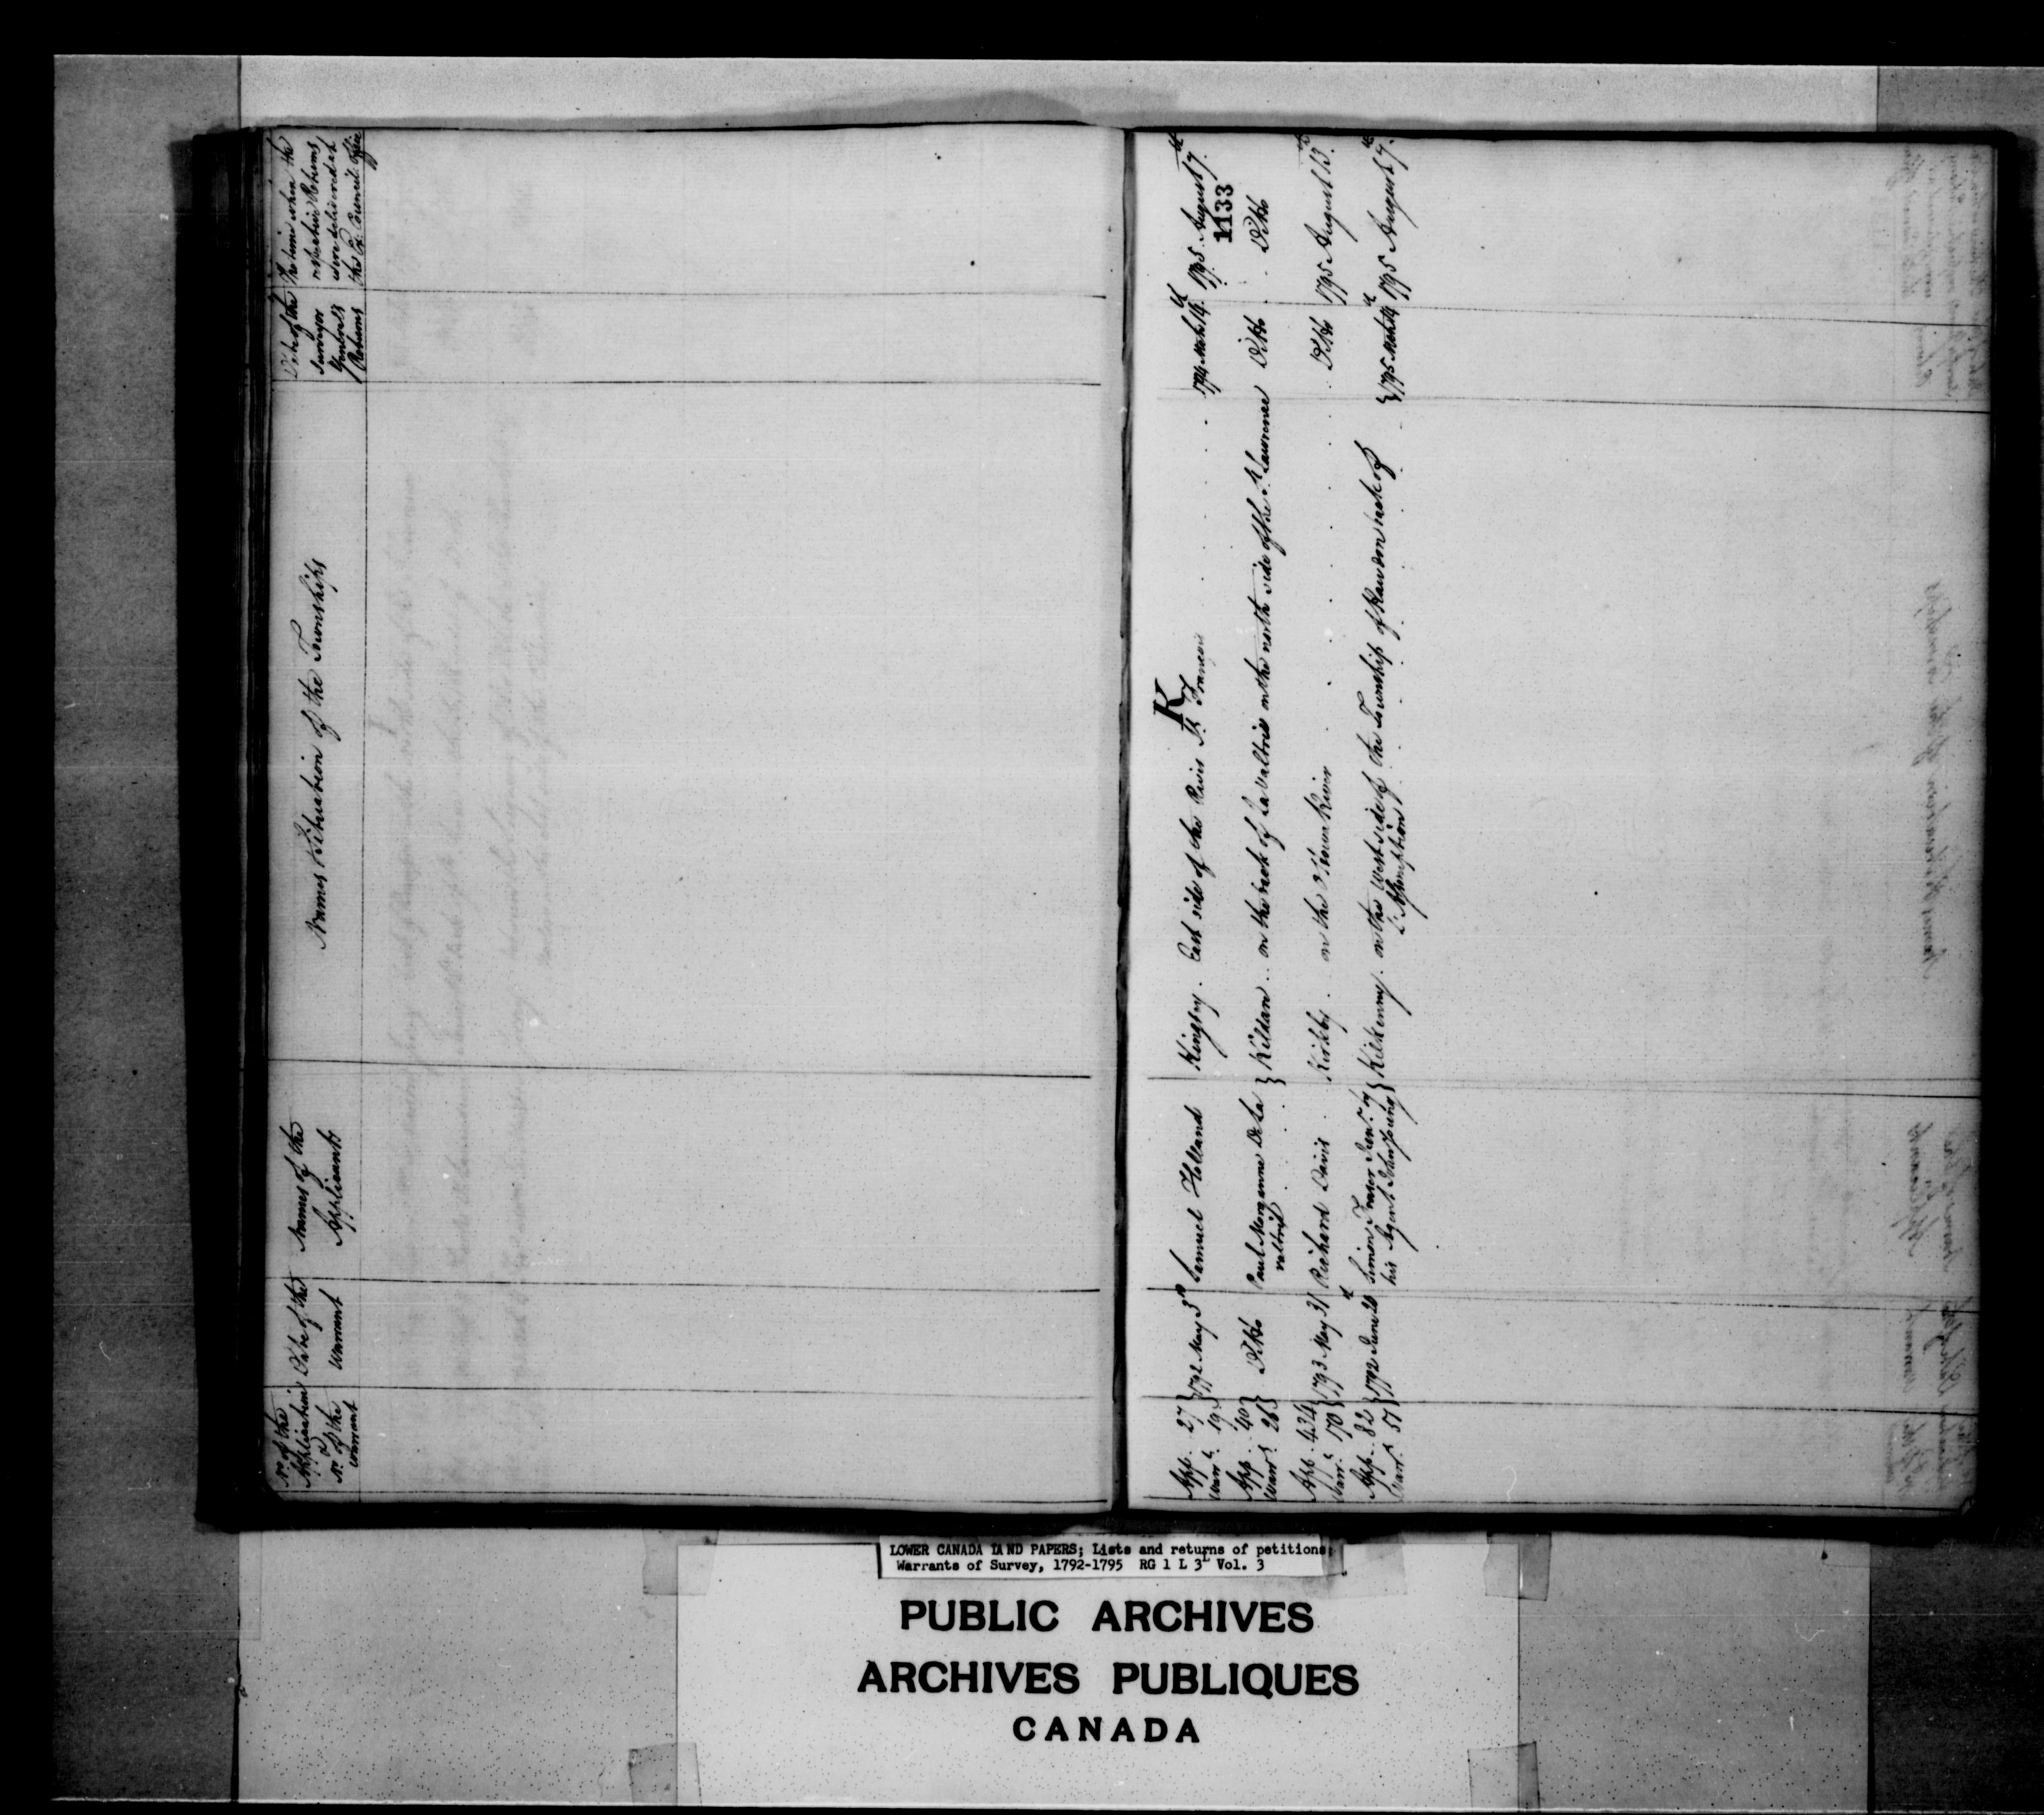 No. of the Application & No. of the warrant
Date of the Warrant
Names of the Applicants
Names & Situation of the Townships
Date of the Surveyor Generals Returns
The time when the respective Returns were delivered at the Ex: Council Office
1133
K
App. 27 Warrt. 19 } 1792 May 3rd Samuel Holland Kingsey. East side of the River St. Francis 1794 March 14th. 1795 August 17th.
App. 40 Warrt. 26 } Ditto Paul Morganne De La valtrie } Kildare on the back of La Valtrie on the north side of the St. Lawrence Ditto Ditto
App. 434 Warrt. 170 } 1793 May 31 Richard Davis Kirkby. on the River Ditto 1795 August 13th.
App. 82 Warrt. 51 } 1792 June 20th Simon Fraser Senr. by his Agent John Young } Kilkenny on the West side of the Township of Rawdon back of L'Assomption } 1795 March 14th 1795 August 17th.
LOWER CANADA LAND PAPERS; Lists and returns of petitions;
Warrants of Survey, 1792-1795 RG 1 L 3L Vol. 3
PUBLIC ARCHIVES
ARCHIVES PUBLIQUES
CANADA